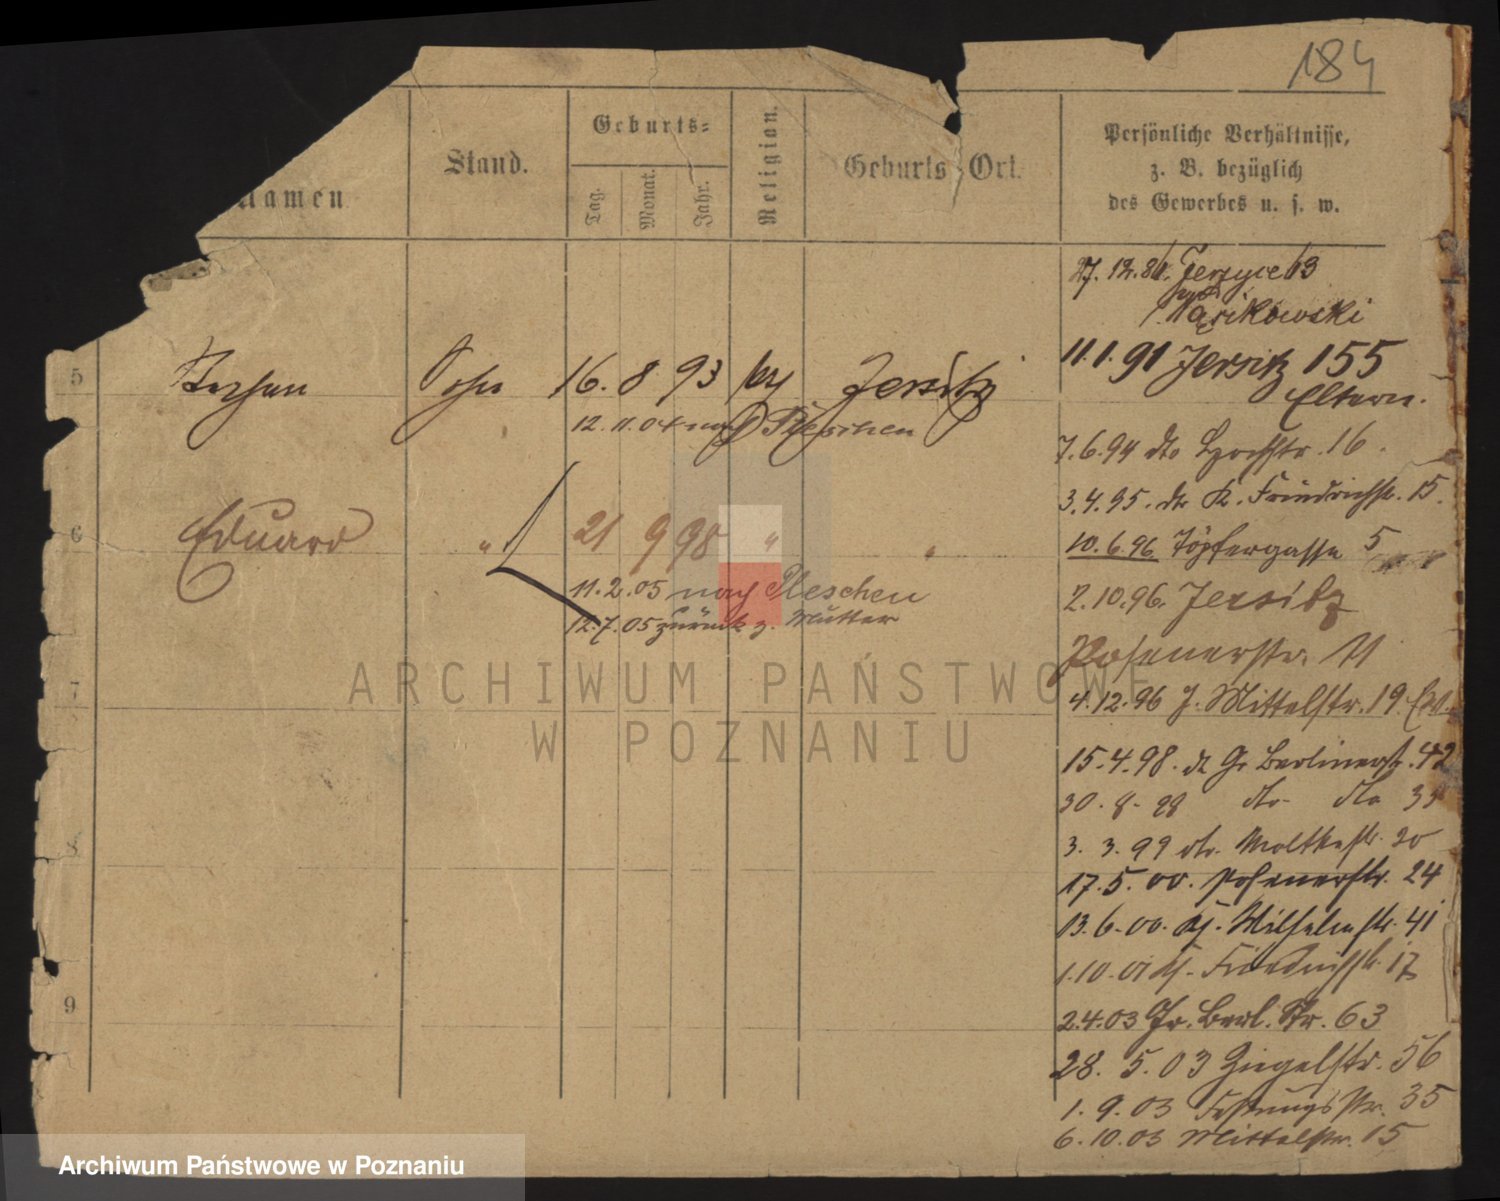 184
namen
Stand.
Geburts-
Tag.
Monat.
Jahr.
Religion.
Geburts Ort.
Persönliche Verhältnisse,
z. B. bezüglich
des Gewerbes u. s. w.
27.12.86. Jerzyce 63
11.1.91 Jersitz 155
Eltern.
5 Stephan Sohn 16. 8 93 Jersitz
12.11.04 nach Pleschen
7.6.94 dto Hochstr. 16.
3.4.95. K. Friedrichstr. 15.
6 Eduard " 21 9 98 " "
10.6.96 Töpfergasse 5
11.2.05 nach Pleschen
12.7.05 zurück z. Mutter
2.10.96. Jersitz
Posenerstr. 11
7
4.12.96 J. Mittelstr. 19.
15.4.98. Gr Berlinerstr. 42
30.8.98 dto. dto
8
3. 3. 99 dto. Moltkestr. 20
17.5.00. Posenerstr. 24
13.6.00. Wilhelmstr. 41
1.10.01 Friedrichstr. 17
9
2.4.03 Gr. Berl. Str. 63
28. 5. 03 Ziegelstr. 56
1. 9. 03 Festungsstr. 35
6.10.03 Mittelstr. 15
ARCHIWUM PAŃSTWOWE
W POZNANIU
Archiwum Państwowe w Poznaniu